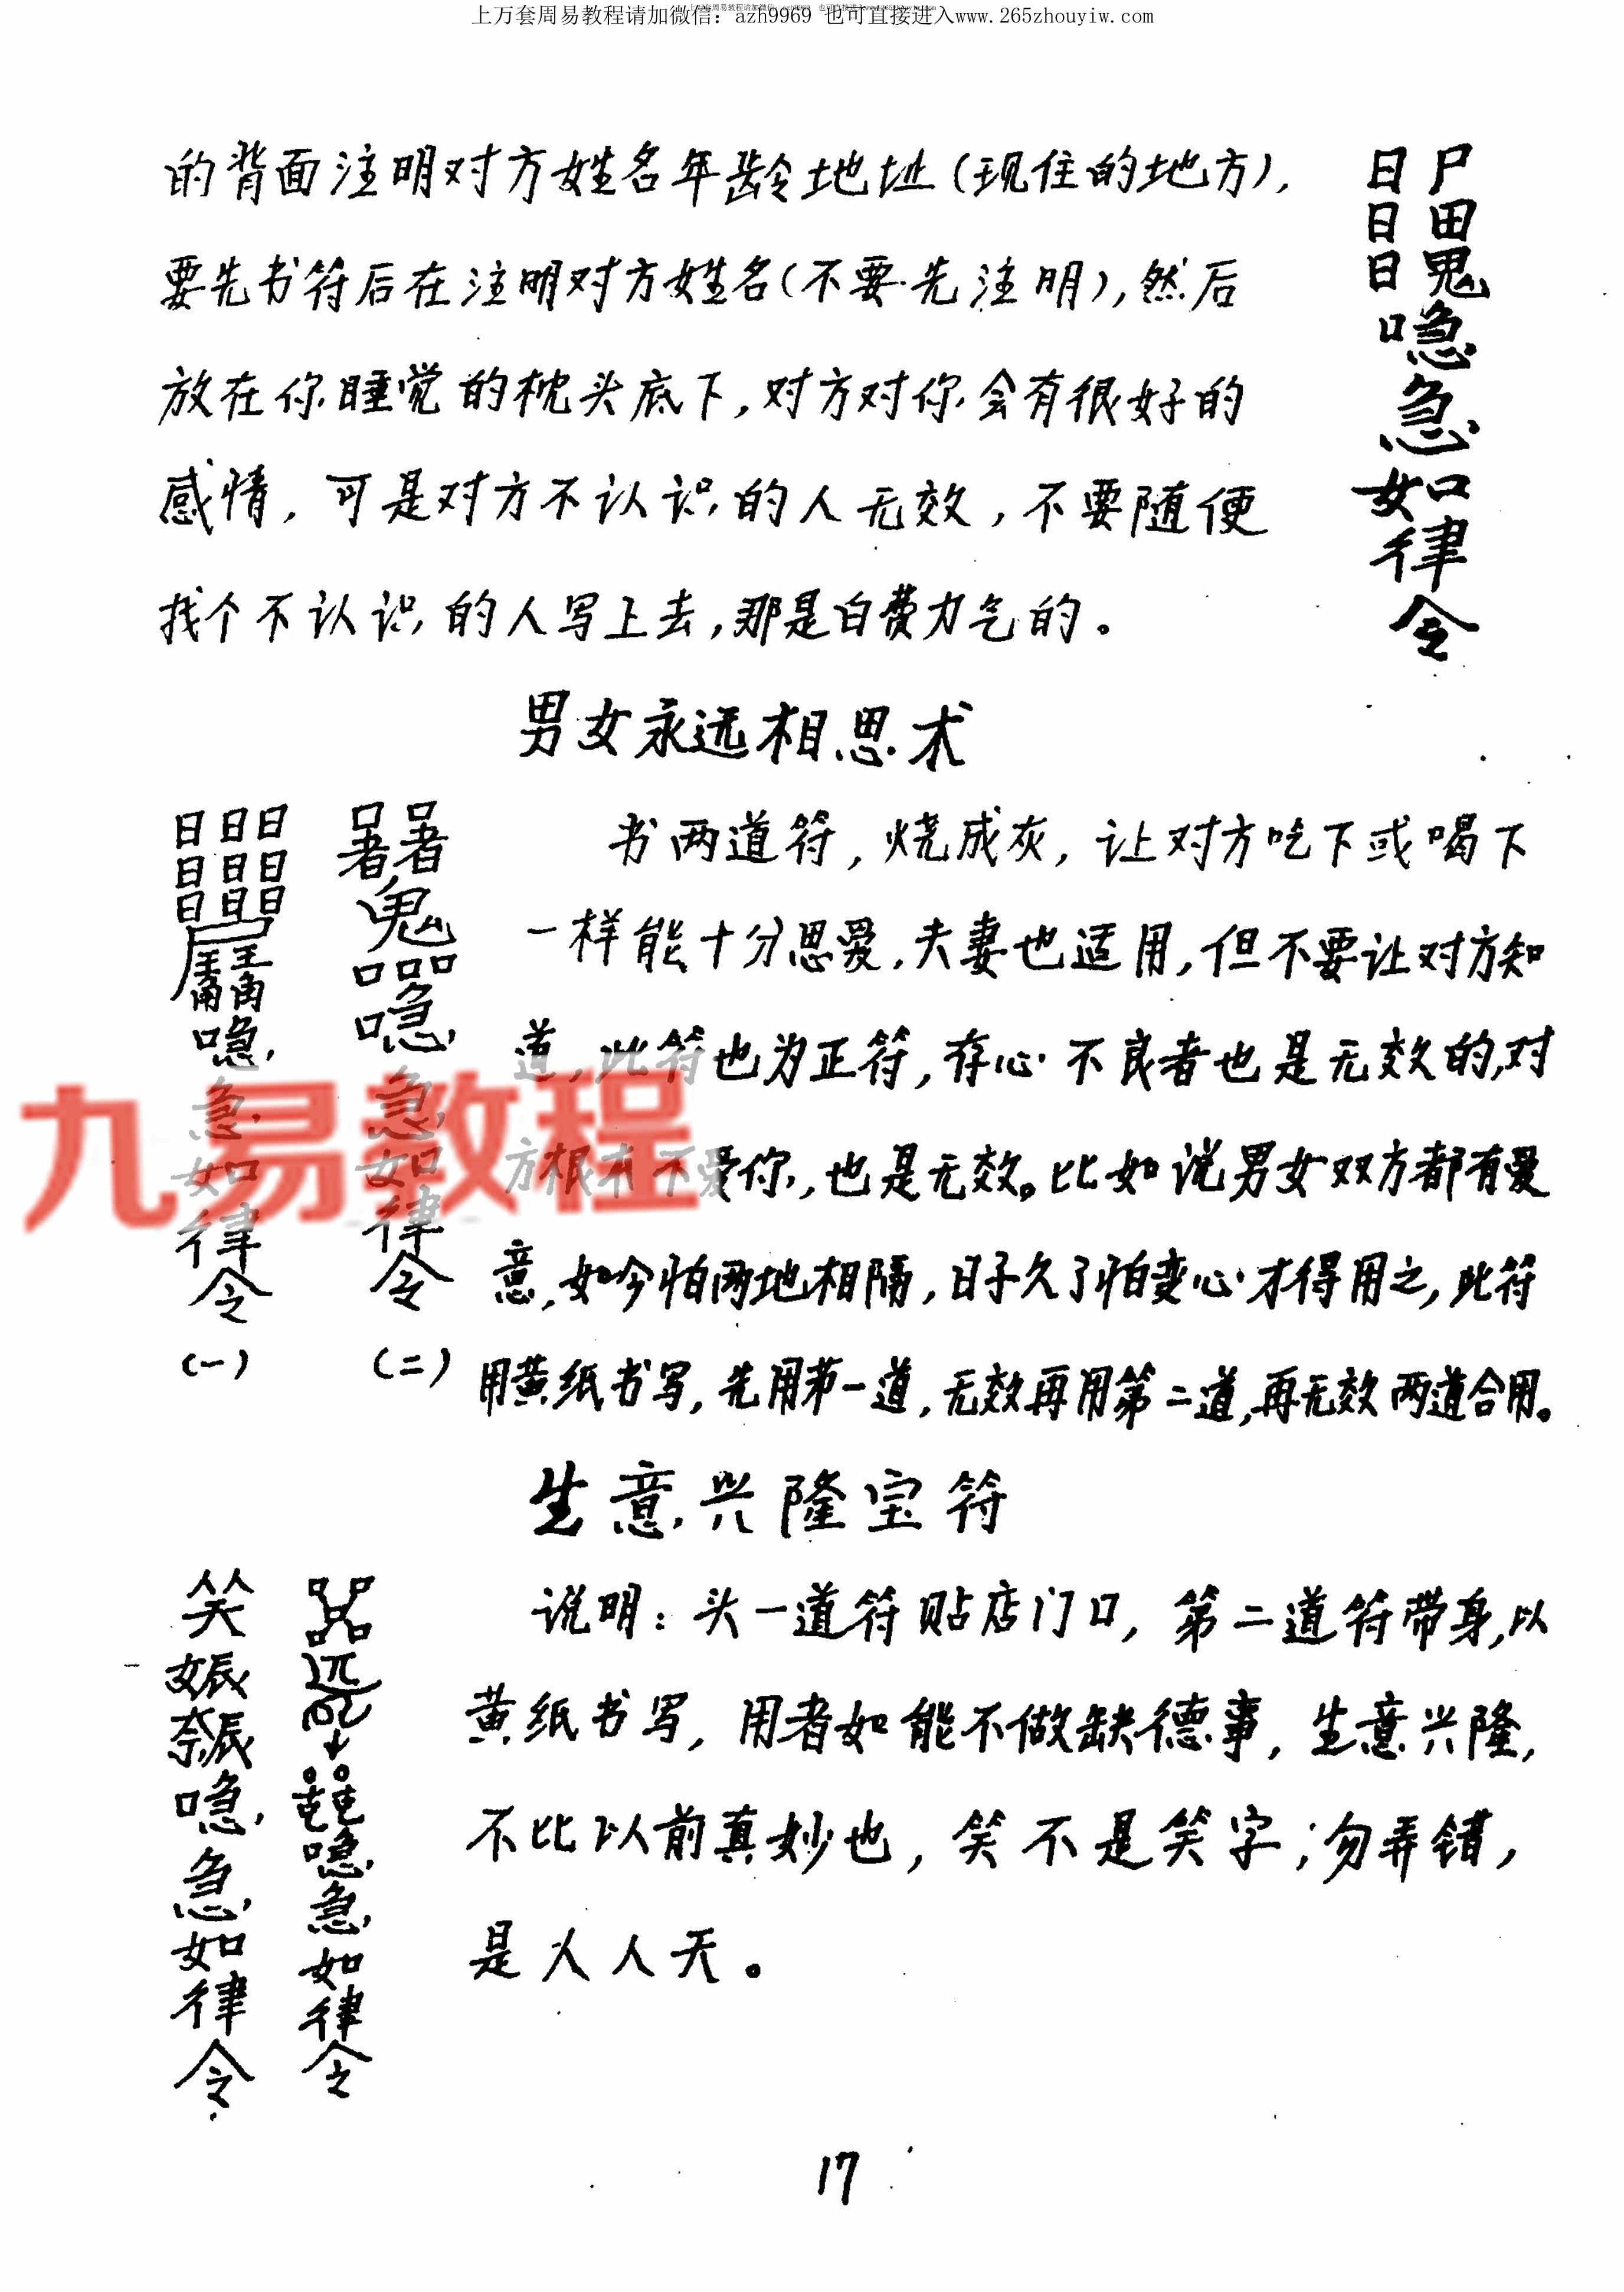 上万套周易教程请加微信：azh9969 也可直接进入www.265zhouyiw.com
的背面注明对方姓名年龄地址(现住的地方),
要先书符后在注明对方姓名(不要先注明),然后
放在你睡觉的枕头底下,对方对你会有很好的
感情,可是对方不认识的人无效,不要随便
找个不认识的人写上去,那是白费力气的。
急如律令
男女永远相思术
书两道符,烧成灰,让对方吃下或喝下
一样能十分恩爱,夫妻也适用,但不要让对方知
道,此符也为正符,存心不良者也是无效的,对
方根本不爱你,也是无效。比如说男女双方都有爱
意,如今怕两地相隔,日子久了怕变心才得用之,此符
用黄纸书写,先用第一道,无效再用第二道,再无效两道合用。
急如律令
(一)
急如律令
(二)
九易教程
生意兴隆宝符
说明:头一道符贴店门口,第二道符带身,以
黄纸书写,用者如能不做缺德事,生意兴隆,
不比以前真妙也,笑不是笑字;勿弄错,
是人人天。
急如律令
急如律令
17